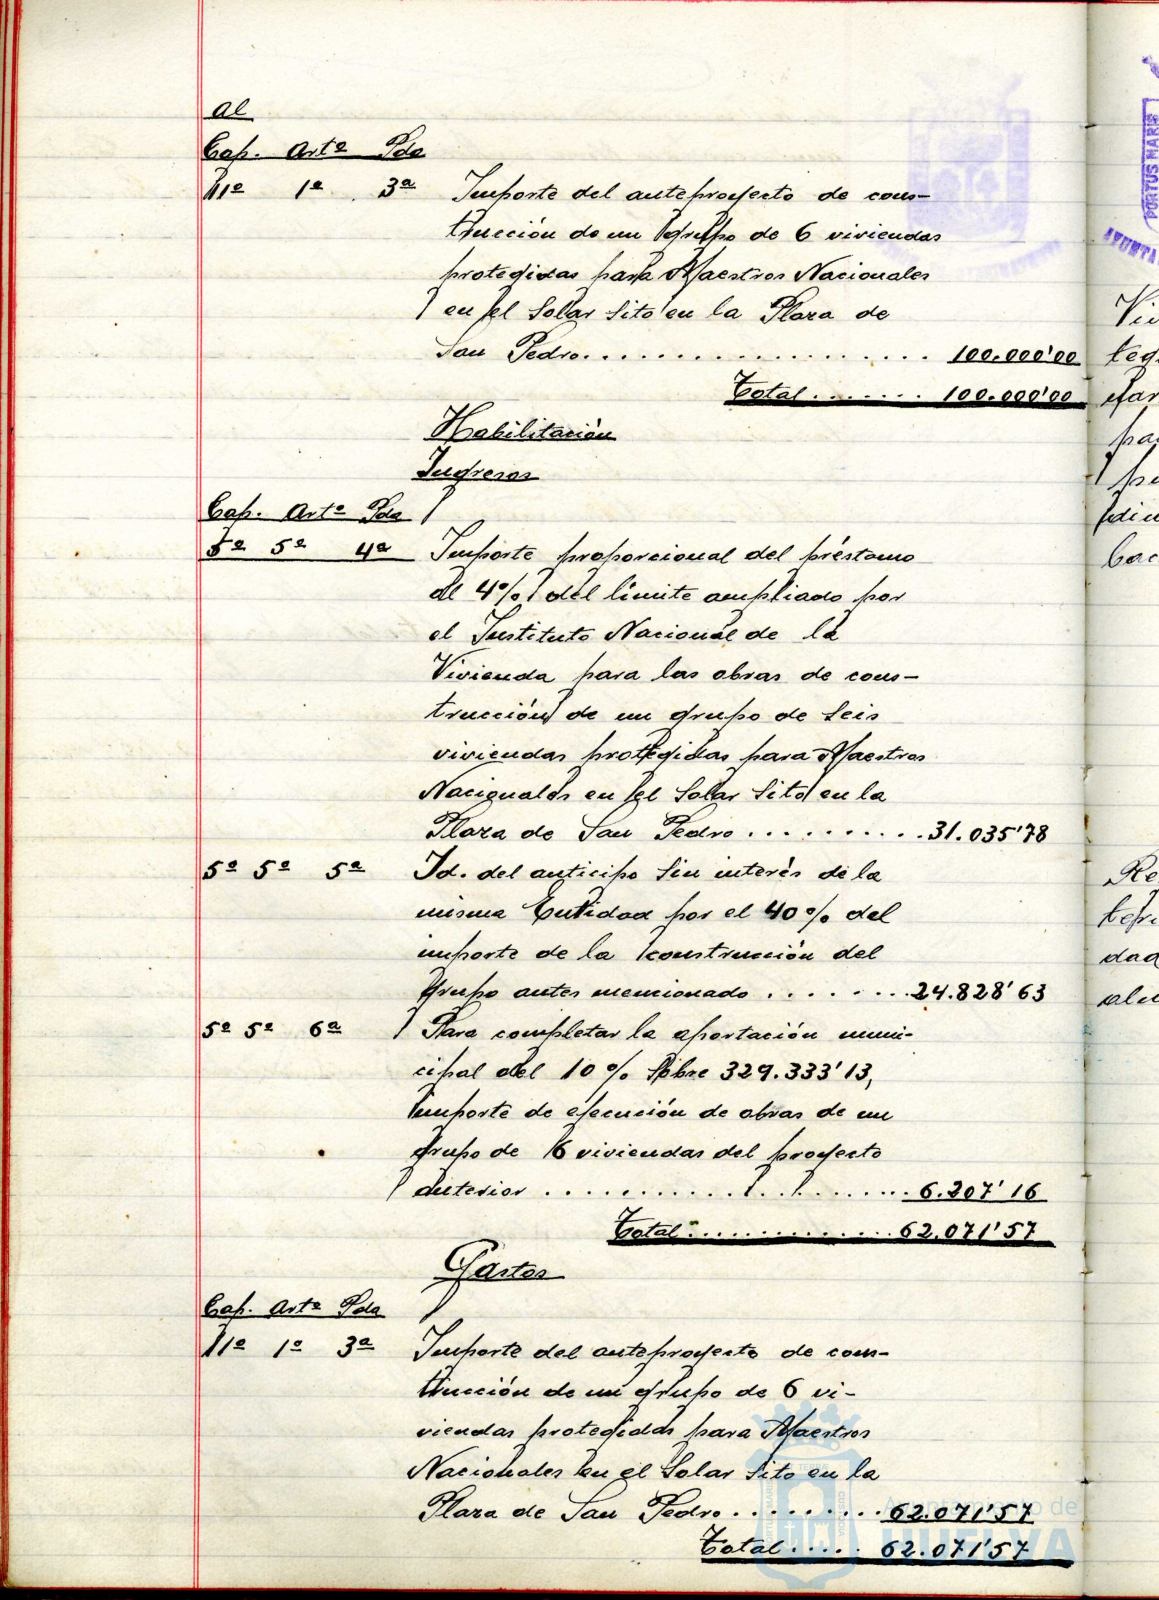 Al
Cap. Artº Pda
11º 1º 3ª Importe del anteproyecto de cons-
trucción de un grupo de 6 viviendas
protegidas para Maestros Nacionales
en el Solar Sito en la Plaza de
San Pedro.................... 100.000'00
Total....... 100.000'00
Habilitación
Ingresos
Cap. Artº Pda
5º 5º 4ª Importe proporcional del préstamo
al 4% del límite ampliado por
el Instituto Nacional de la
Vivienda para las obras de cons-
trucción de un grupo de Seis
viviendas protegidas para Maestros
Nacionales en el Solar Sito en la
Plaza de San Pedro..........31.035'78
5º 5º 5ª Id. del anticipo Sin interés de la
misma Entidad por el 40% del
importe de la construcción del
grupo antes mencionado.......24.828'63
5º 5º 6ª Para completar la aportación muni-
cipal del 10% Sobre 329.333'13,
importe de ejecución de obras de un
grupo de 6 viviendas del proyecto
anterior....................6.207'16
Total.............62.071'57
Gastos
Cap. Artº Pda
11º 1º 3ª Importe del anteproyecto de cons-
trucción de un grupo de 6 vi-
viendas protegidas para Maestros
Nacionales en el Solar Sito en la
Plaza de San Pedro.........62.071'57
Total..... 62.071'57
Ayuntamiento de
HUELVA
PORTUS MARIS